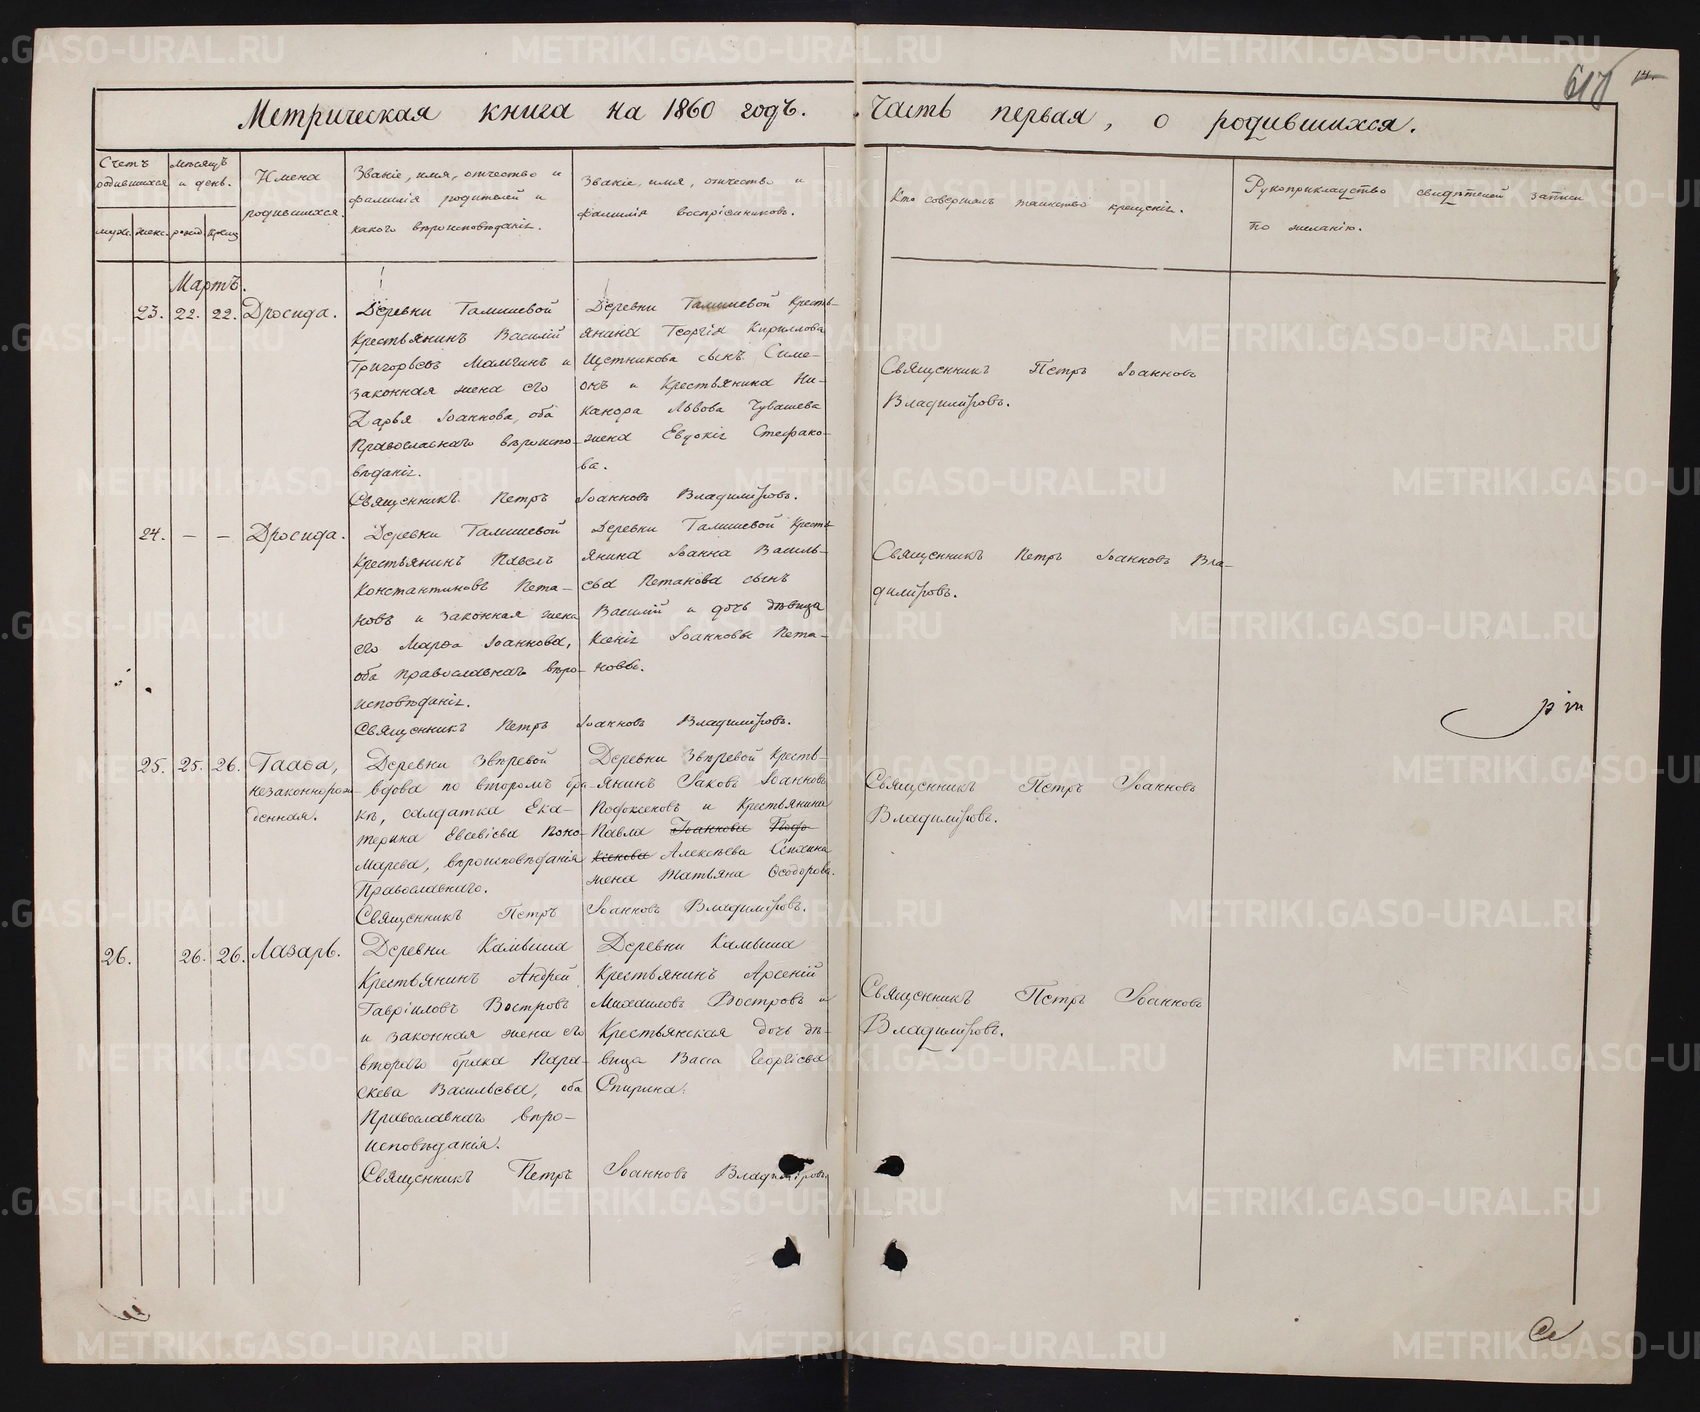 617 14.
Метрическая книга на 1860 годъ. Часть первая, о родившихся.
Счетъ родившихся
муж. женс.
Мѣсяцъ и день.
рожд. крещ.
Имена родившихся.
Званіе, имя, отчество и
фамилія родителей и
какого вѣроисповѣданія.
Званіе, имя, отчество и
фамилія воспріемниковъ.
Кто совершалъ таинство крещенія.
Рукоприкладство свидѣтелей записи
по желанію.
Мартъ.
23. 22. 22. Дросида.
Деревни Талицевой
Крестьянинъ Василій
Григорьевъ Мамгинъ и
законная жена его
Дарья Іоаннова, оба
Православнаго вѣроиспо-
вѣданія.
Деревни Талицевой Кресть-
янина Георгія Кириллова
Щетникова сынъ Симе-
онъ и Крестьянина Ни-
канора Львова Чувашева
жена Евдокія Стефано-
ва.
Священникъ Петръ Іоанновъ
Владиміровъ.
Священникъ Петръ Іоанновъ Владиміровъ.
24. – – Дросида.
Деревни Талицевой
Крестьянинъ Павелъ
Константиновъ Пета-
новъ и законная жена
его Марѳа Іоаннова,
оба православнаго вѣро-
исповѣданія.
Деревни Талицевой Кресть-
янина Іоанна Василь-
ева Петанова сынъ
Василій и дочь дѣвица
Ксенія Іоанновы Пета-
новы.
Священникъ Петръ Іоанновъ Вла-
диміровъ.
Священникъ Петръ Іоанновъ Владиміровъ.
25. 25. 26. Гааѳа,
незаконнорож-
денная.
Деревни Звѣревой
вдова по второмъ бра-
кѣ, салдатка Ека-
терина Евсевіева Поно-
марева, вѣроисповѣданія
Православнаго.
Деревни Звѣревой Кресть-
янинъ Іаковъ Іоанновъ
Подоксеновъ и Крестьянина
Павла Іоаннова Подо-
ксенова Алексѣева Спехина
жена Татьяна Ѳеодорова.
Священникъ Петръ Іоанновъ
Владиміровъ.
Священникъ Петръ Іоанновъ Владиміровъ.
26. 26. 26. Лазарь.
Деревни Камыша
Крестьянинъ Андрей
Гавріиловъ Востровъ
и законная жена его
втораго брака Пара-
скева Васильева, оба
Православнаго вѣро-
исповѣданія.
Деревни Камыша
Крестьянинъ Арсеній
Михаиловъ Востровъ и
Крестьянская дочь дѣ-
вица Васса Георгіева
Спирина.
Священникъ Петръ Іоанновъ
Владиміровъ.
Священникъ Петръ Іоанновъ Владиміровъ.
METRIKI.GASO-URAL.RU